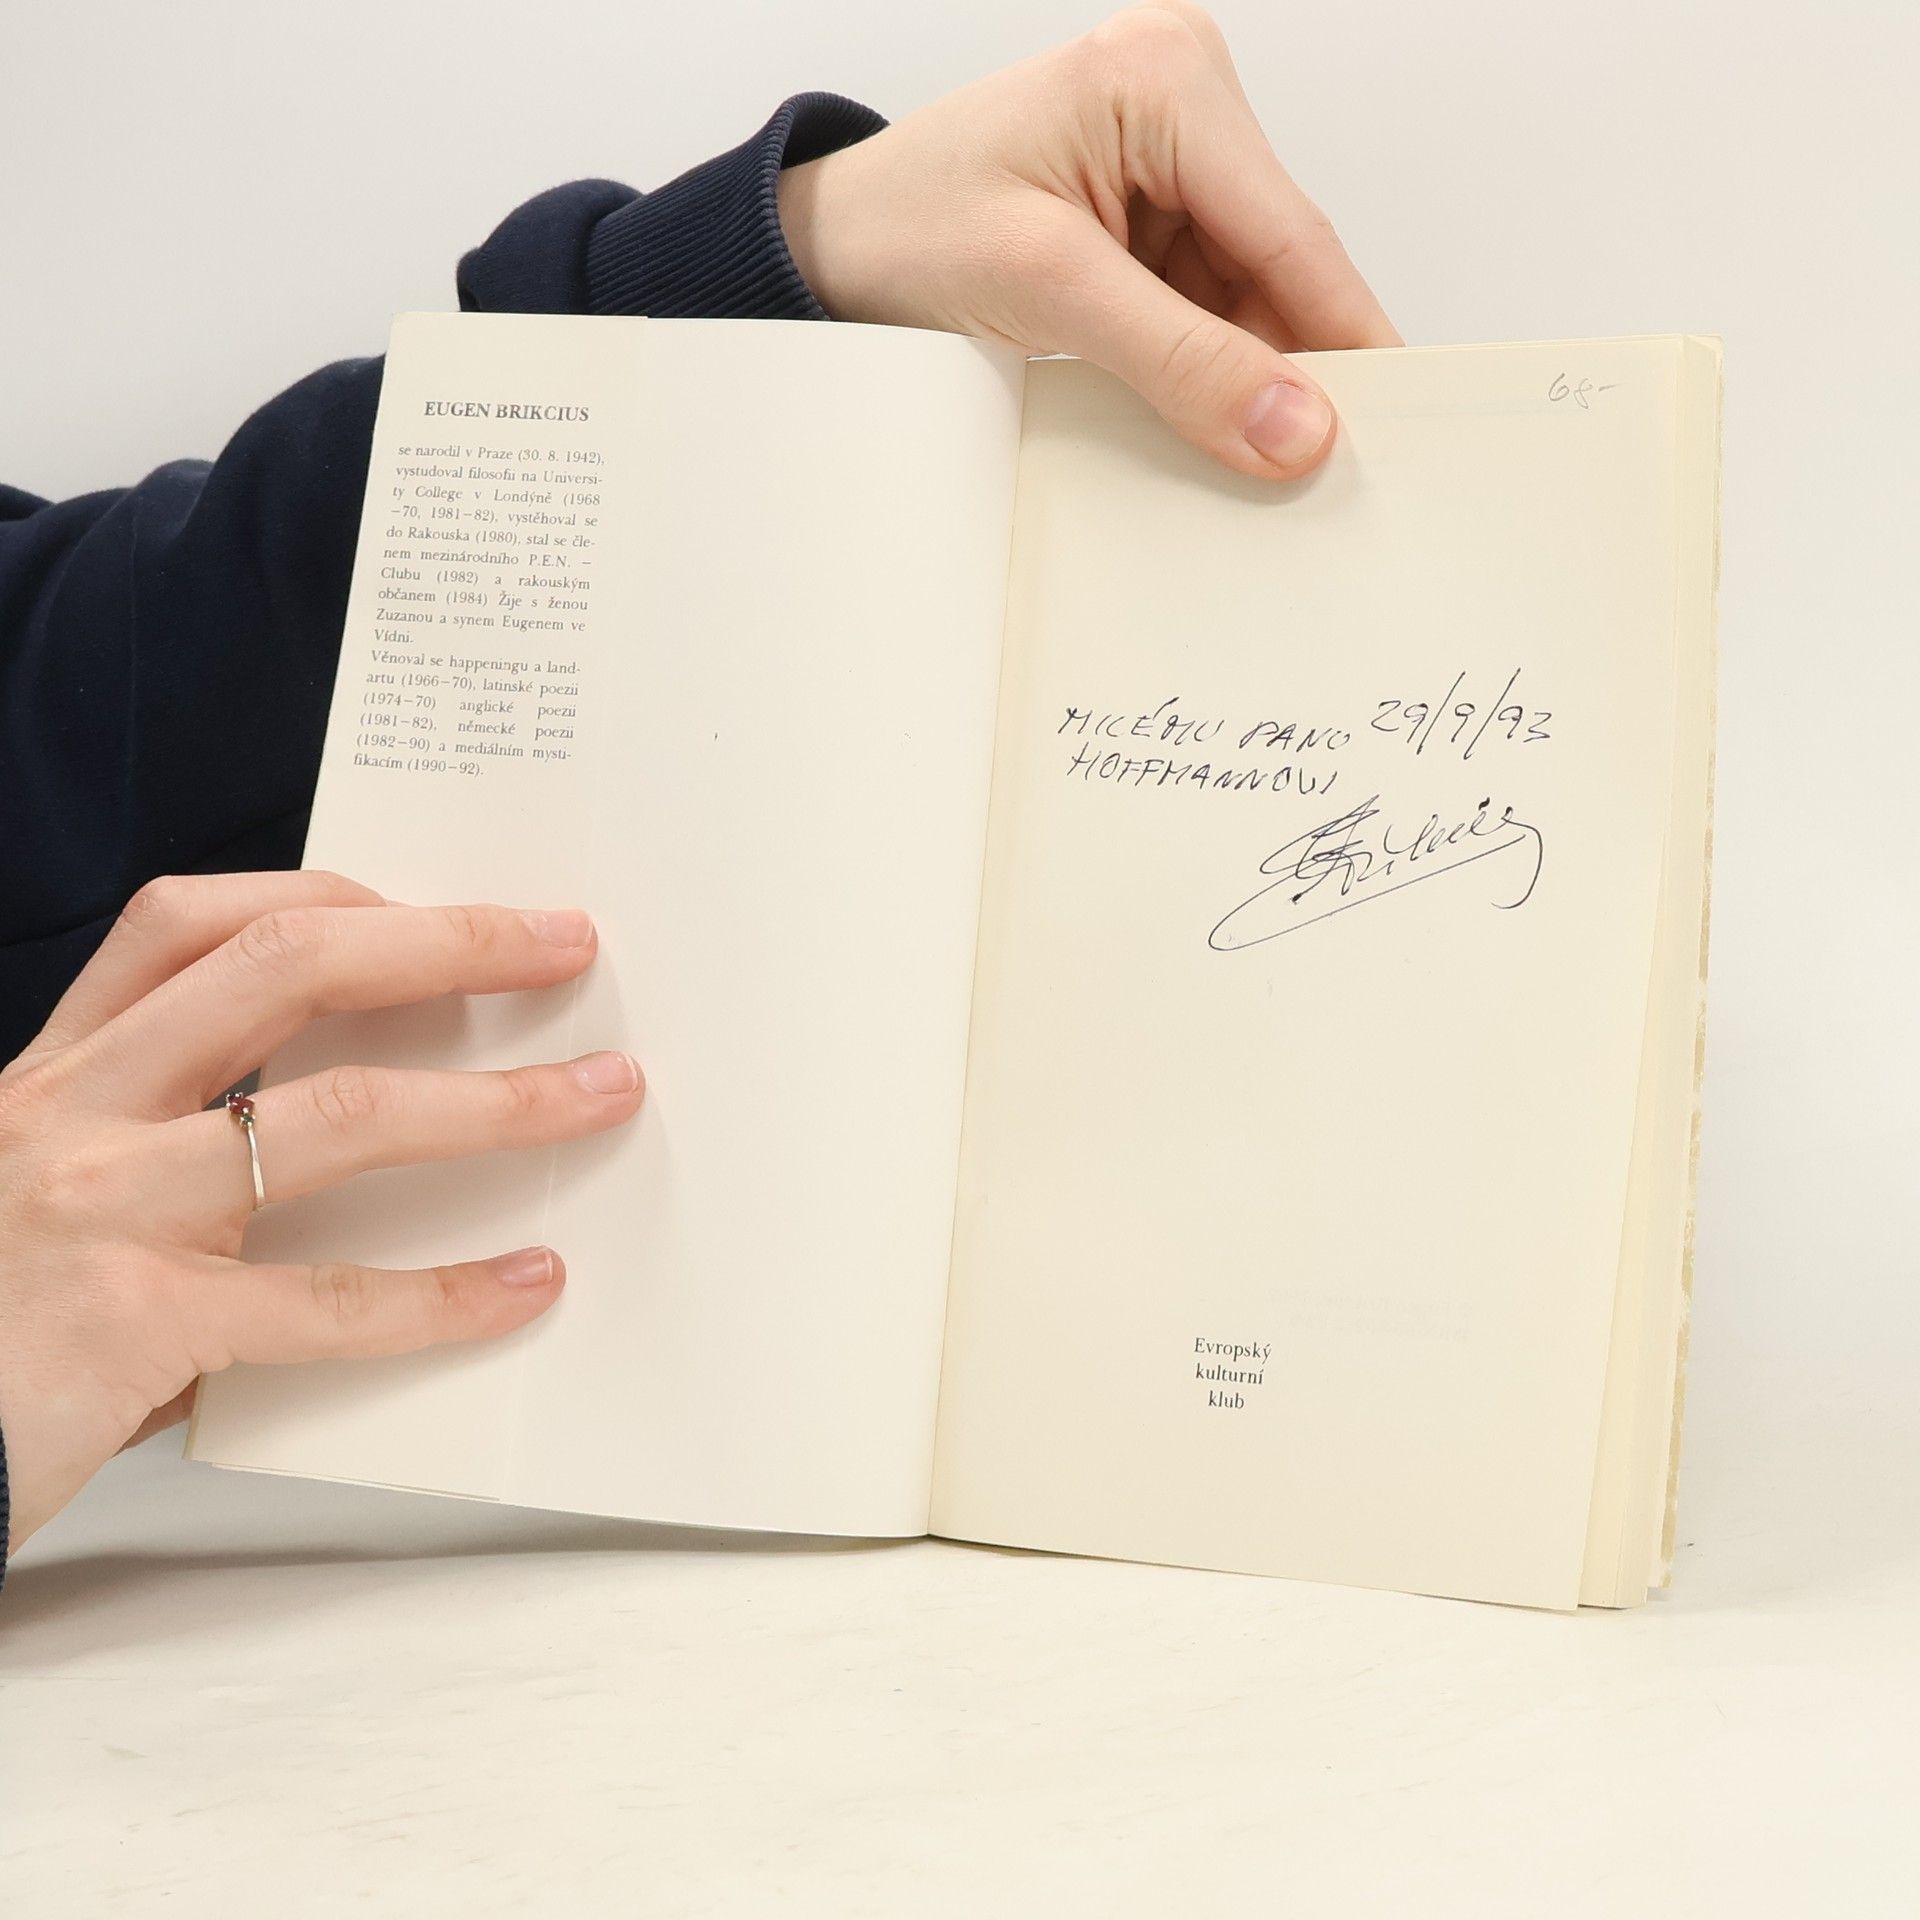 EUGEN BRIKCIUS
se narodil v Praze (30. 8. 1942),
vystudoval filosofii na Universi-
ty College v Londýně (1968
–70, 1981–82), vystěhoval se
do Rakouska (1980), stal se čle-
nem mezinárodního P.E.N. –
Clubu (1982) a rakouským
občanem (1984) Žije s ženou
Zuzanou a synem Eugenem ve
Vídni.
Věnoval se happeningu a land-
artu (1966–70), latinské poezii
(1974–70) anglické poezii
(1981–82), německé poezii
(1982–90) a mediálním mysti-
fikacím (1990–92).
68-
MILÉMU PANU 29/9/93
HOFFMANNOVI
Evropský
kulturní
klub